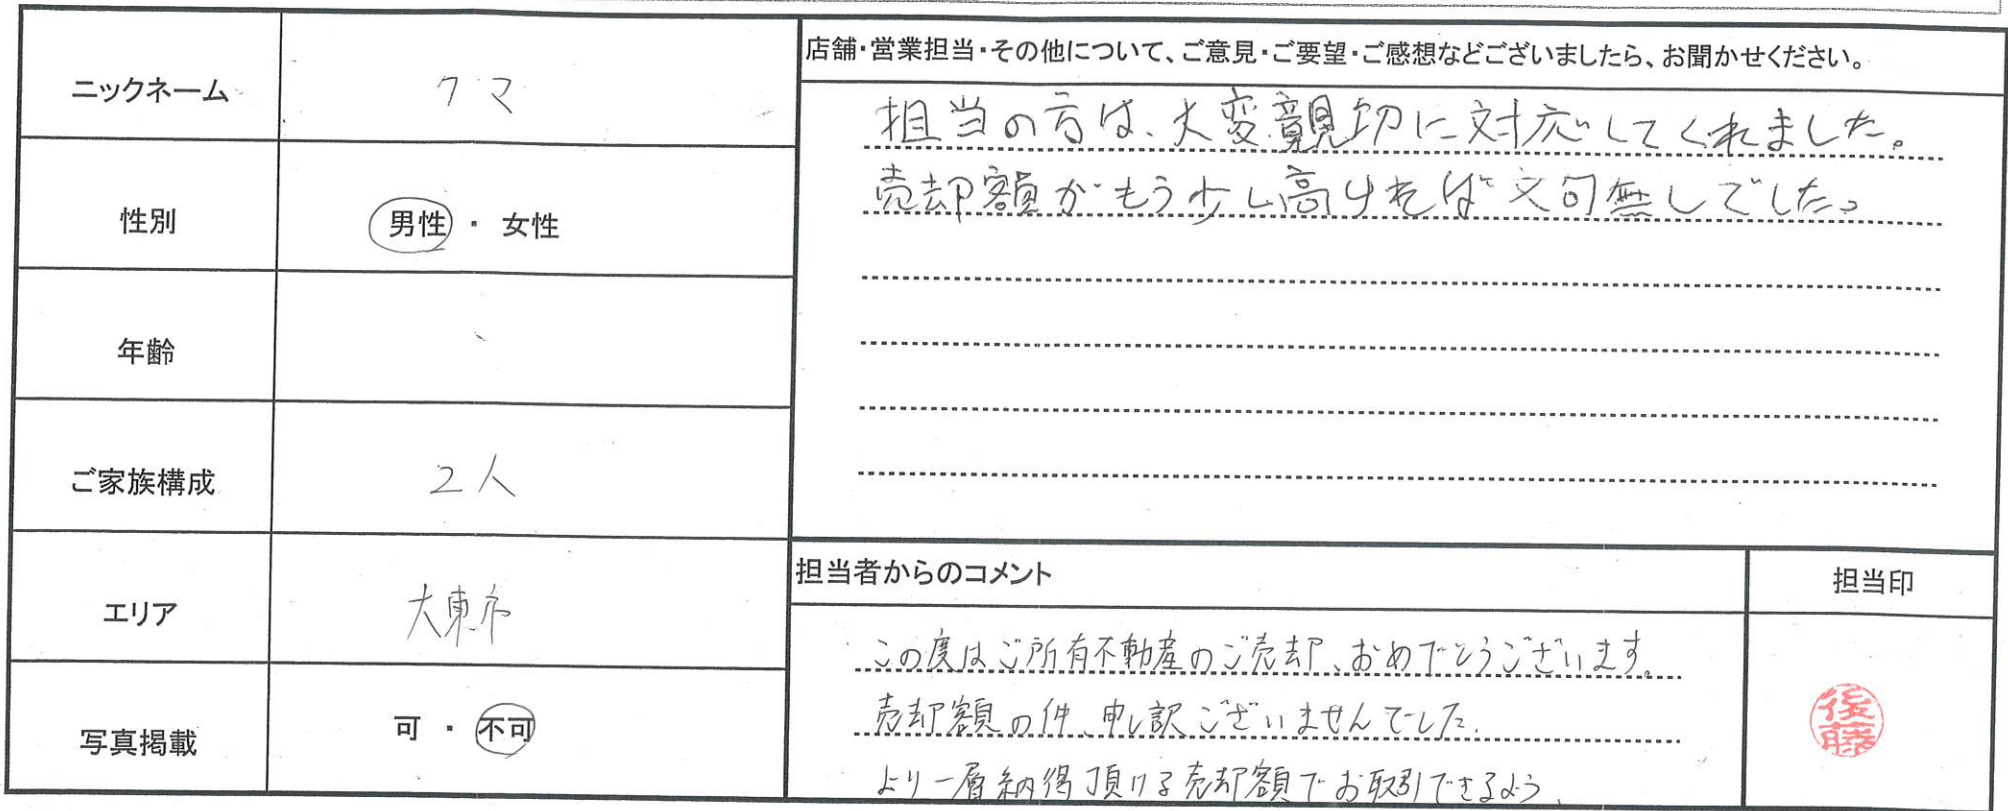 ニックネーム
クマ
性別
男性 ・ 女性
年齢
ご家族構成
2人
エリア
大東市
写真掲載
可 ・ 不可
店舗・営業担当・その他について、ご意見・ご要望・ご感想などございましたら、お聞かせください。
担当の方は、大変親切に対応してくれました。
売却額がもう少し高ければ文句無しでした。
担当者からのコメント
この度はご所有不動産のご売却、おめでとうございます。
売却額の件、申し訳ございませんでした。
より一層納得頂ける売却額でお取引できるよう、
担当印
後藤